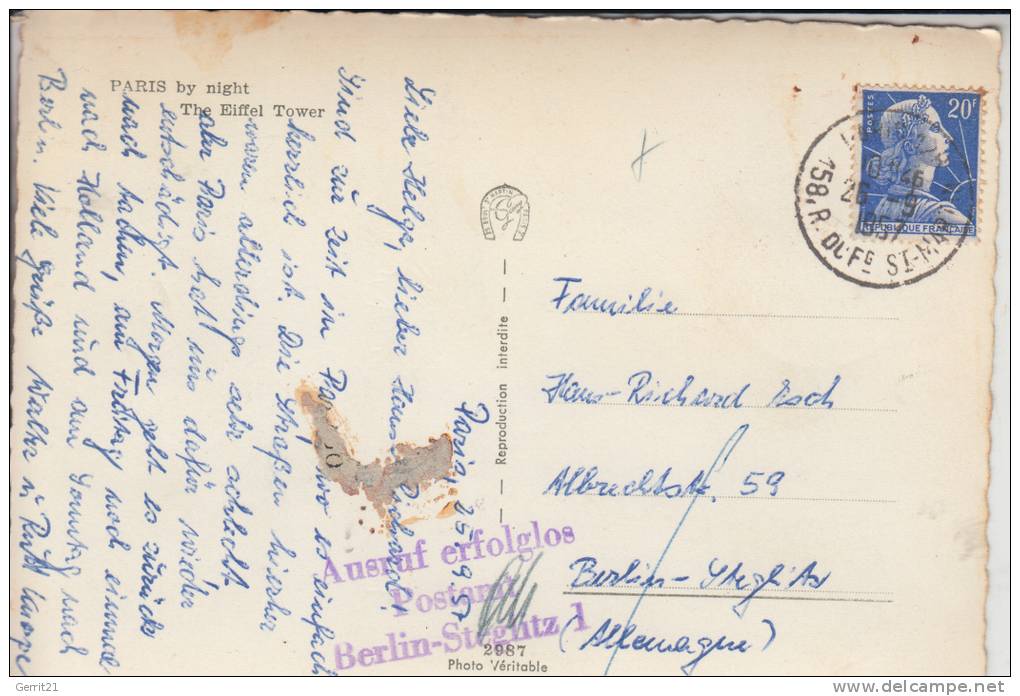 PARIS by night
The Eiffel Tower
Paris, 25.9.57
Liebe Helga, lieber Hans-Richard!
Sind zur Zeit in Paris, wo es einfach
herrlich ist. Die Straßen hierher
waren allerdings sehr schlecht
aber Paris hat uns dafür wieder
entschädigt. Morgen geht es zurück
nach Aachen, am Freitag noch einmal
nach Holland und am Sonntag nach
Berlin. Viele Grüße Walter u. Ruth
Reproduction interdite
2987
Photo Véritable
POSTES
20F
REPUBLIQUE FRANÇAISE
26 -9
1957
158, R. DU FG ST-MARTIN
Familie
Hans-Richard Esch
Albrechtstr. 59
Berlin-Steglitz
(Allemagne)
Ausruf erfolglos
Postamt
Berlin-Steglitz 1
Gerrit21
delcampe.net